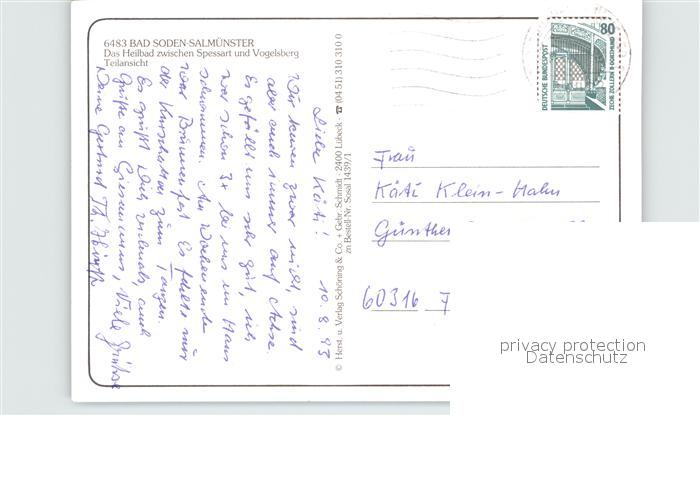 6483 BAD SODEN-SALMÜNSTER
Das Heilbad zwischen Spessart und Vogelsberg
Teilansicht
10.8.93
Liebe Käti!
Wir kuren zwar nicht, sind
aber auch immer auf Achse.
Es gefällt uns sehr gut, ich
war schon 3x bei uns im Haus
schwimmen. Am Wochenende
war Brunnenfest. Es fehlte nur
der Kurschatten zum Tanzen.
Es grüßt Dich vielmals, auch
Grüße an Giesemanns, Viele Grüße
Deine Gertrud
© Herst. u. Verlag Schöning & Co. + Gebr. Schmidt · 2400 Lübeck · ☎ (04 51) 310 310 0
zn Bestell-Nr. Sosal 1439/1
80
DEUTSCHE BUNDESPOST
ZECHE ZOLLERN II · DORTMUND
Frau
Käti Klein-Hahn
Günther
60316
privacy protection
Datenschutz